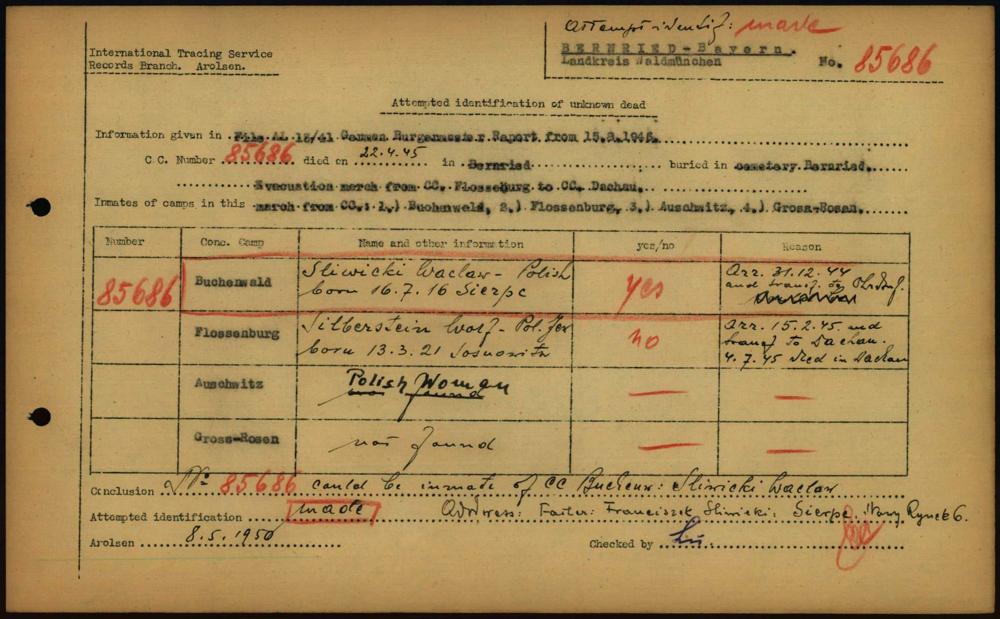 Attempt identif: made
International Tracing Service
Records Branch. Arolsen.
BERNRIED-Bayern.
Landkreis Waldmünchen
No. 85686
Attempted identification of unknown dead
Information given in File AL 12/41 German Burgermeister Raport from 15.8.1946.
C.C. Number 85686 died on 22.4.45 in Bernried buried in cemetary Bernried.
Evacuation march from CC. Flossenburg to CC. Dachau.
Inmates of camps in this march from CC.: 1.) Buchenwald, 2.) Flossenburg, 3.) Auschwitz, 4.) Gross-Rosen.
Number Conc. Camp Name and other information yes/no Reason
85686 Buchenwald Sliwicki Waclaw - Polish born 16.7.16 Sierpc yes Arr. 31.12.44 and transf. to Ohrdruf.
Flossenburg Silberstein Wolf - Pol. Jew born 13.3.21 Sosnowitz no Arr. 15.2.45 and transf to Dachau. 4.7.45 died in Dachau
Auschwitz Polish Woman not found —
Gross-Rosen not found —
Conclusion No 85686 could be inmate of CC Buchenw: Sliwicki Waclaw
Attempted identification made Address: Father: Franciszek Sliwicki, Sierpc, Nowy Rynek 6.
Arolsen 8.5.1950 Checked by